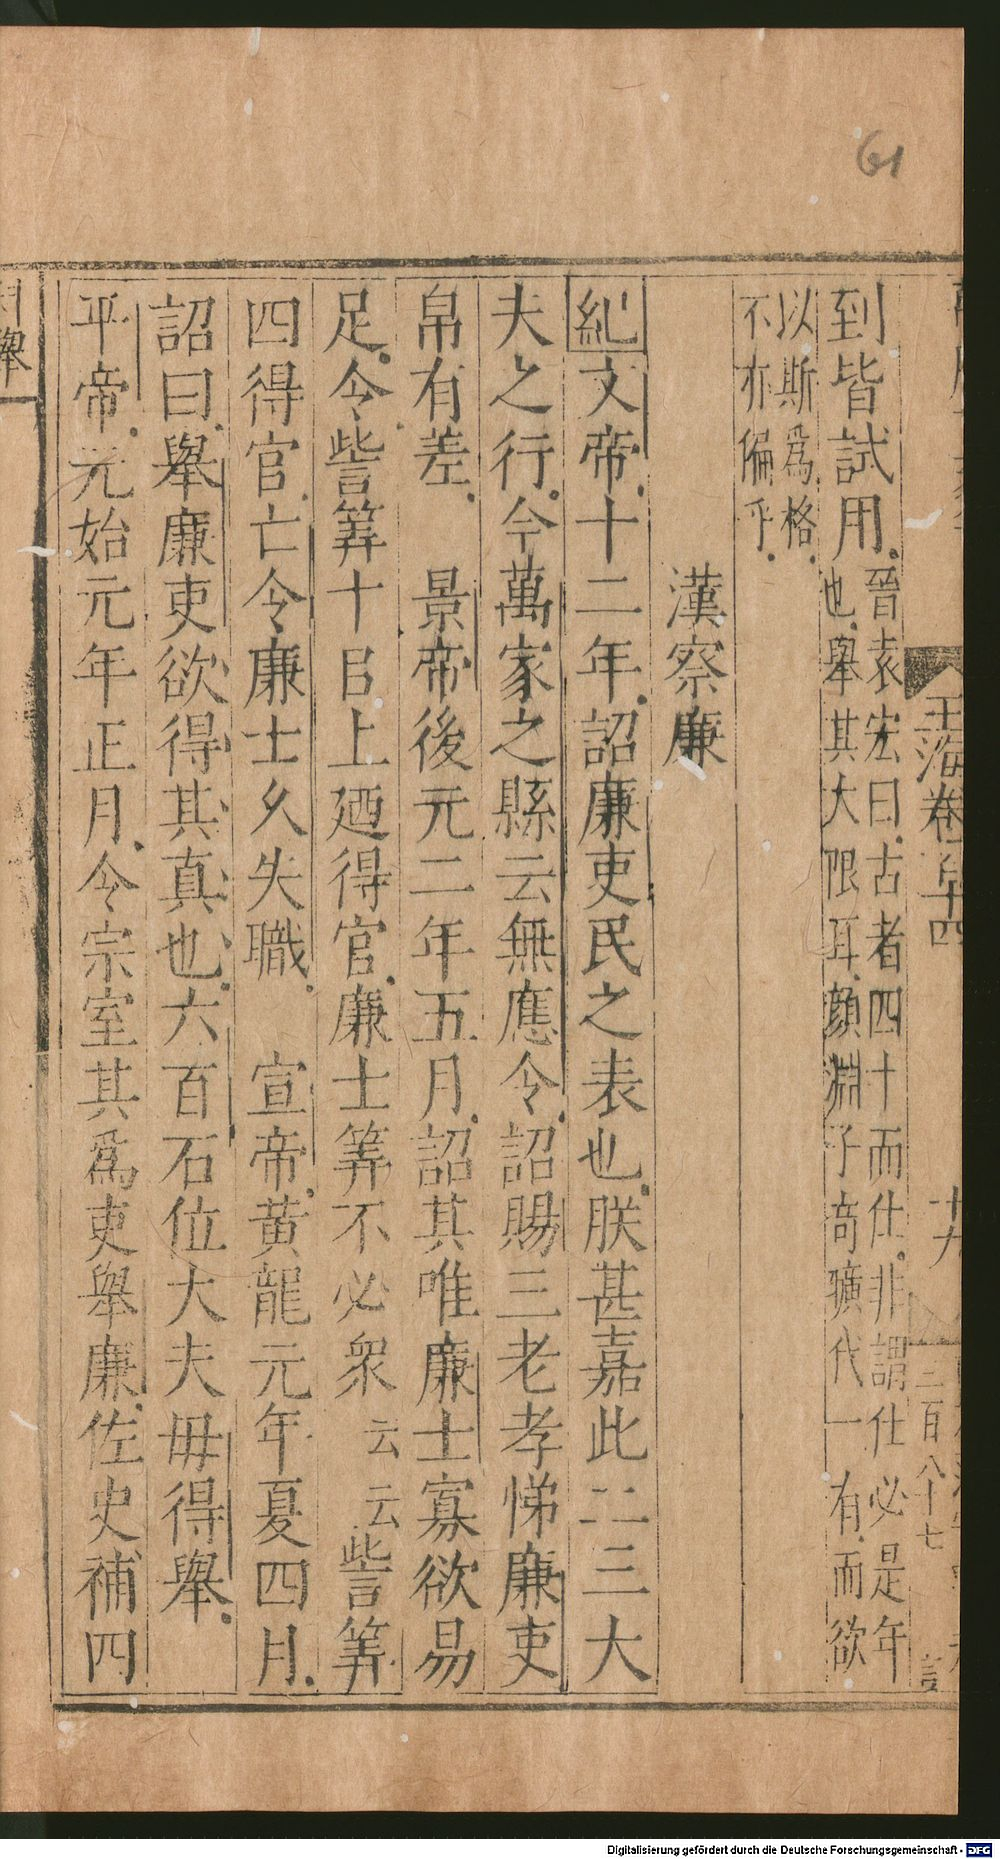 61
玉海卷百十四
十九
三百八十七
言
到皆試用晉袁宏曰古者四十而仕非謂仕必是年
也舉其大限耳顏淵子奇曠代一有而欲
以斯爲格
不亦偏乎
漢察廉
紀文帝十二年詔廉吏民之表也朕甚嘉此二三大
夫之行今萬家之縣云無應令詔賜三老孝悌廉吏
帛有差　景帝後元二年五月詔其唯廉士寡欲易
足今訾筭十㠯上廼得官廉士筭不必衆云云訾筭
四得官亡令廉士久失職　宣帝黃龍元年夏四月
詔曰舉廉吏欲得其真也六百石位大夫毋得舉
平帝元始元年正月令宗室其爲吏舉廉佐史補四
舉
Digitalisierung gefördert durch die Deutsche Forschungsgemeinschaft - DFG